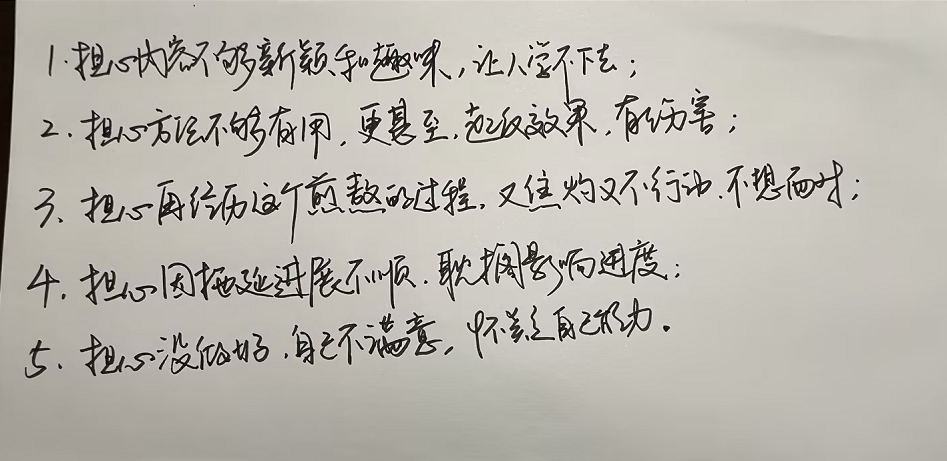 1.担心内容不够新颖和趣味,让人学不下去;
2.担心方法不够有用,更甚至,起反效果,有伤害;
3.担心再经历这个煎熬的过程,又焦灼又不行动.不想面对;
4.担心因拖延进展不顺.耽搁影响进度;
5.担心没做好.自己不满意,怀疑自己能力。